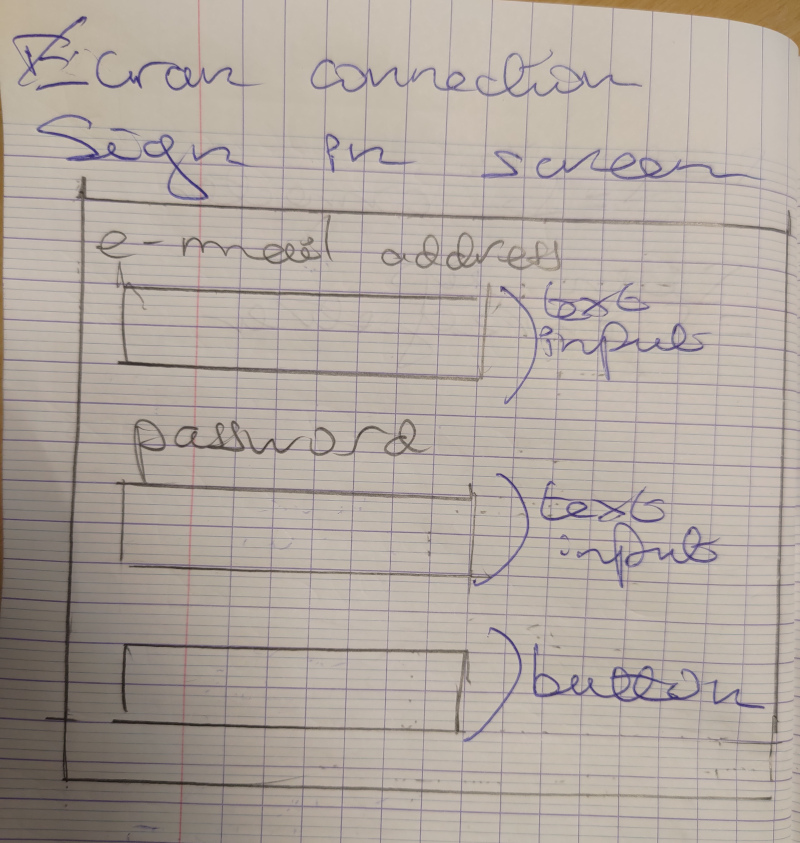 Écran connection
Sign in screen
e-mail address
text
input
password
text
input
button